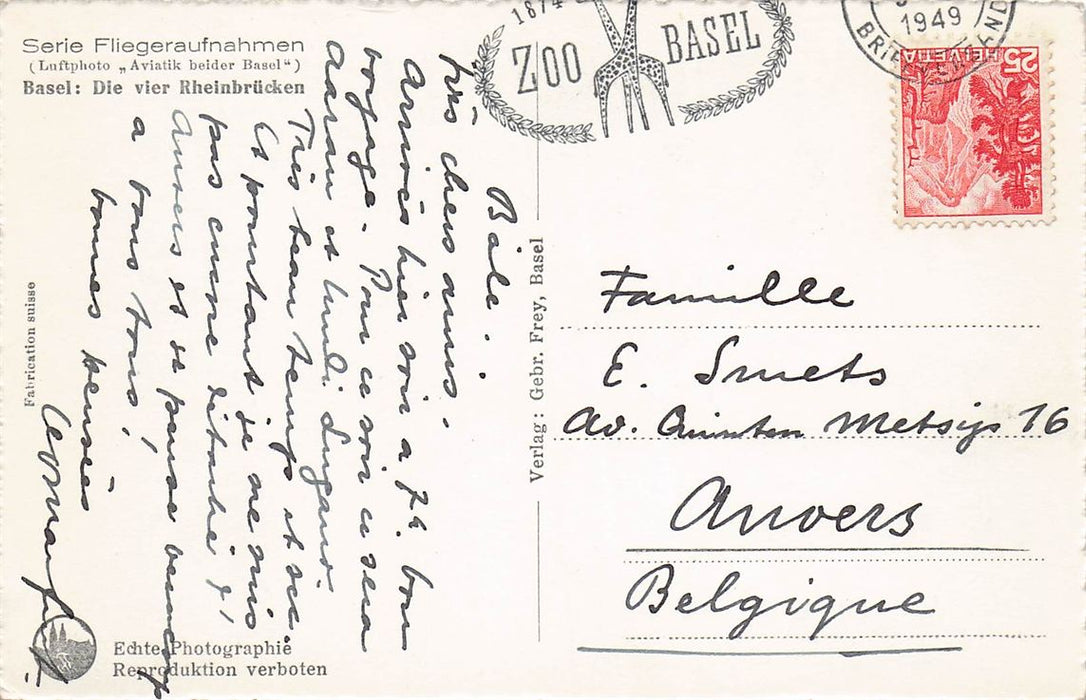 Serie Fliegeraufnahmen
(Luftphoto „Aviatik beider Basel“)
Basel: Die vier Rheinbrücken
1874
ZOO BASEL
1949
BRIEF
HELVETIA
25
Bâle.
très chers amis.
Arrivés hier soir a 7h. bon
voyage - Pour ce soir ce sera
Aarau et lundi Lugano.
Très beau temps et sec
Et pourtant je ne suis
pas encore
Anvers et je pense beaucoup
a vous tous,
bonnes pensées
Famille
E. Smets
Av. Quinten Metsijs 16
Anvers
Belgique
Verlag: Gebr. Frey, Basel
Fabrication suisse
Echte Photographie
Reproduktion verboten